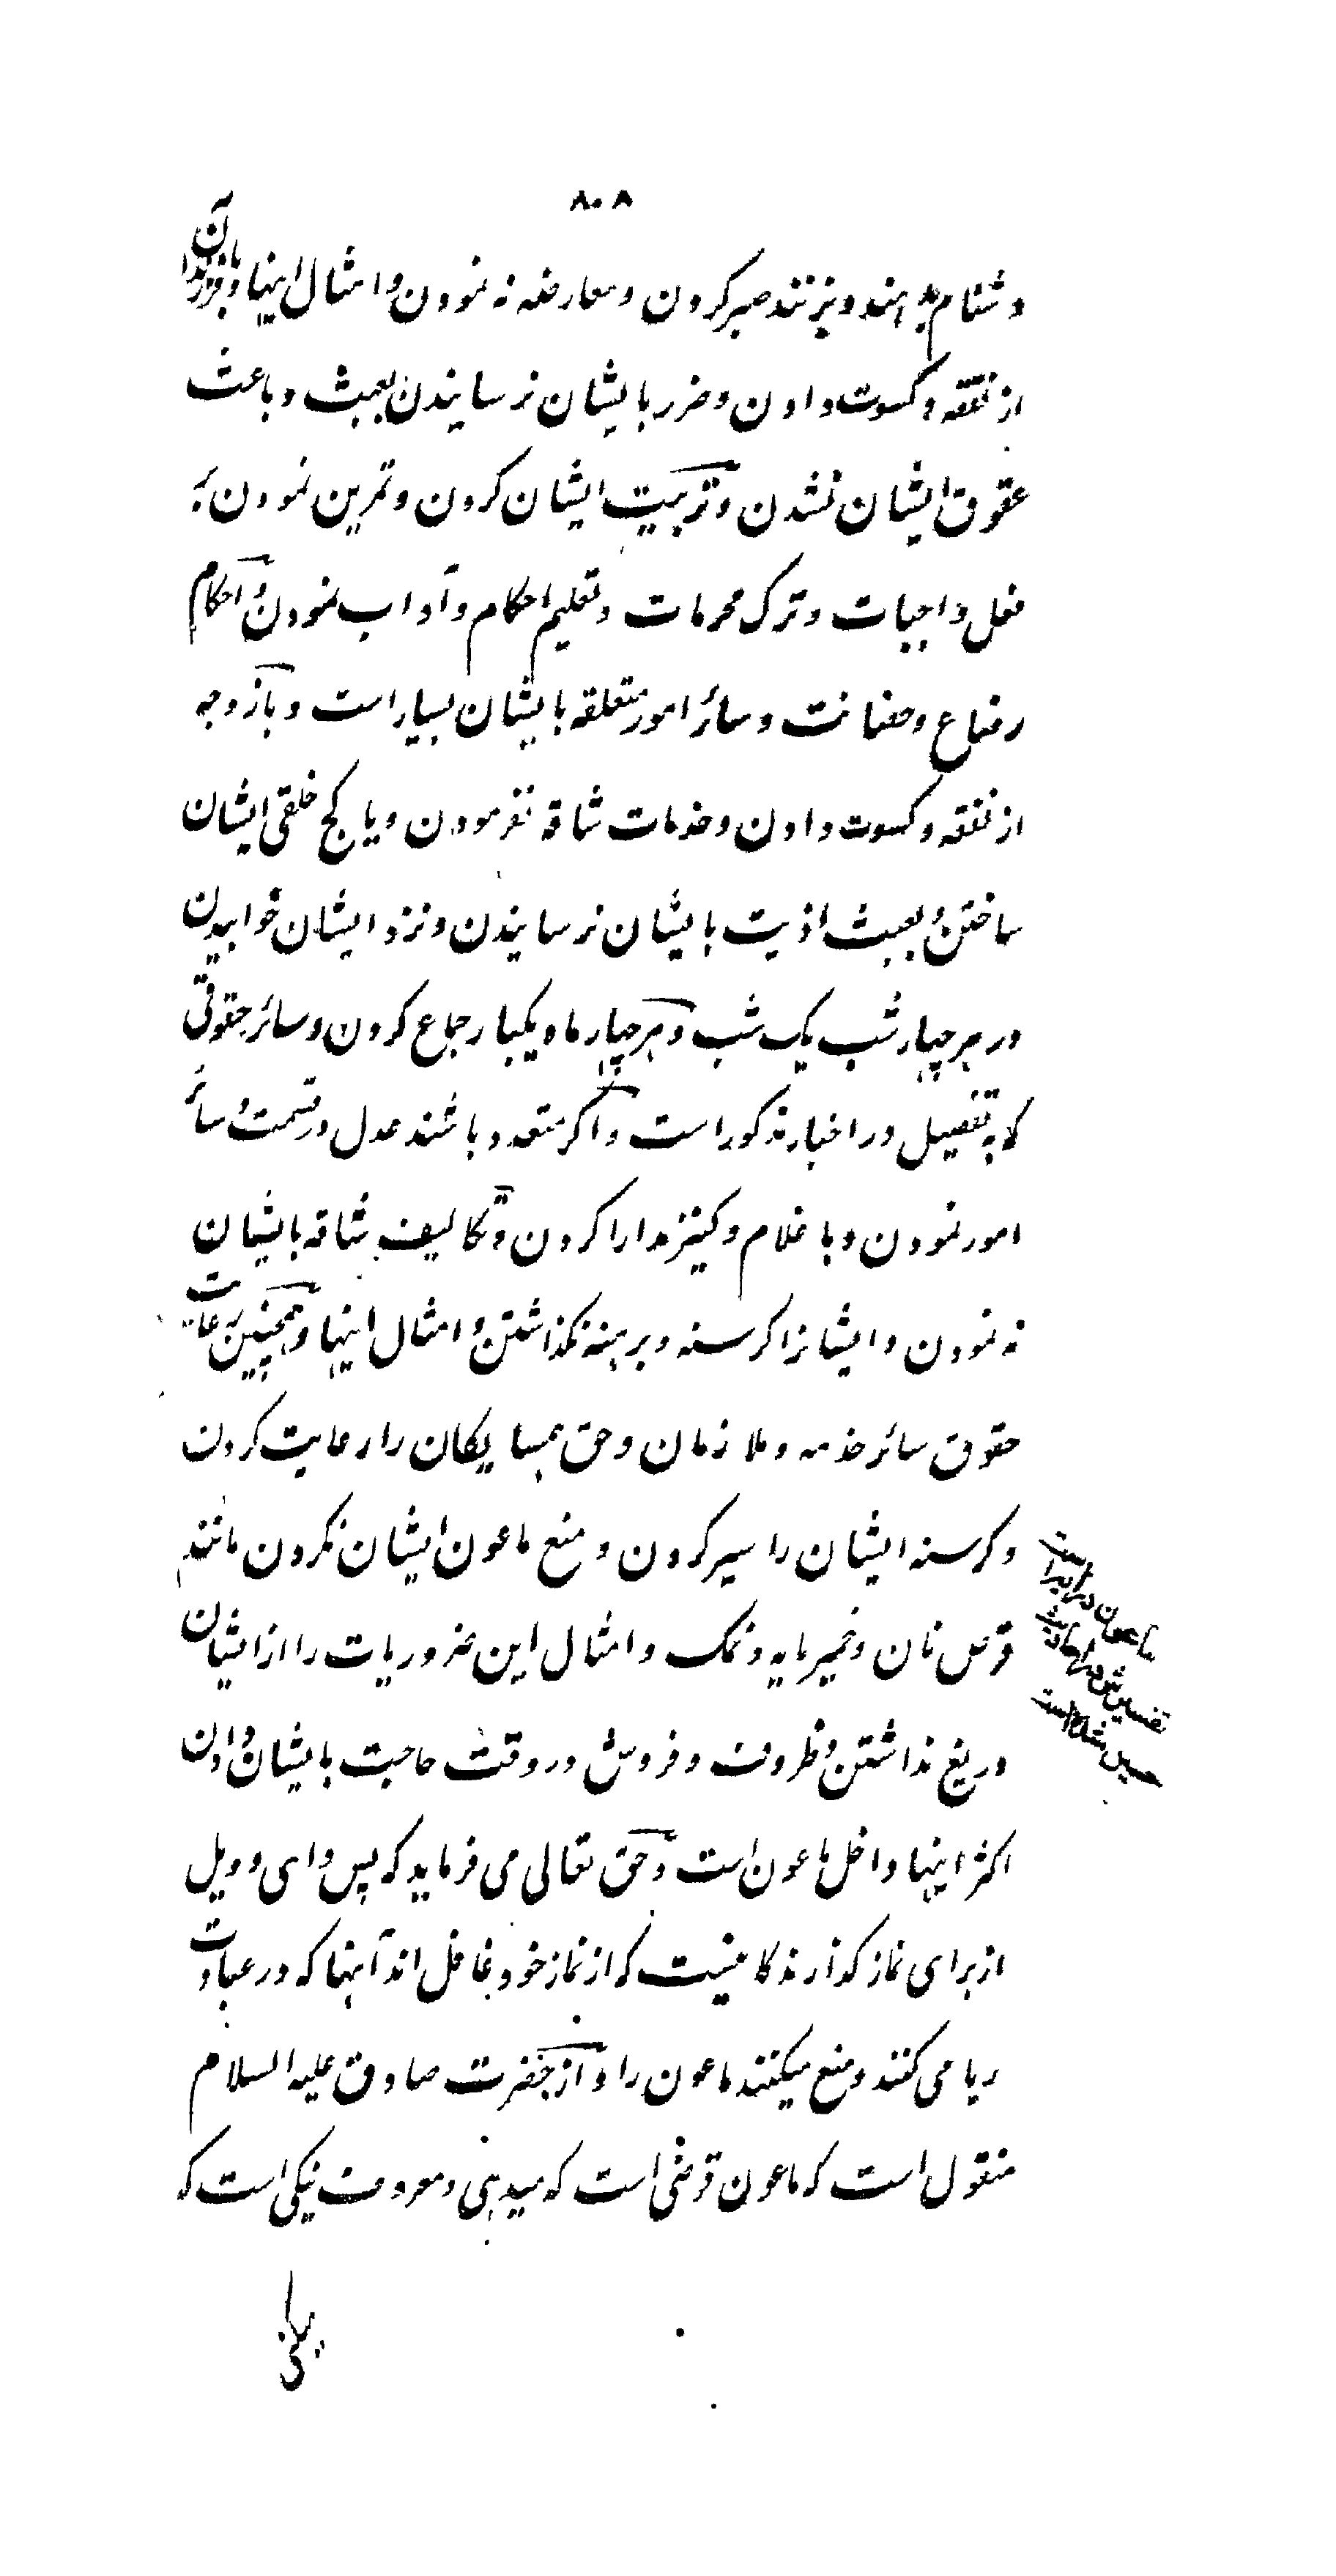 ۸۰۸
دشنام بدهند و بزنند صبر کردن و معارضه نه نمودن و امثال اینها و بفرزندان
از نفقه و کسوت دادن و ضرر بایشان نرسانیدن بعبث و باعث
عقوق ایشان نشدن و تربیت ایشان کردن و تمرین نمودن به
فعل واجبات و ترک محرمات و تعلیم احکام و آداب نمودن و احکام
رضاع و حضانت و سائر امور متعلقه بایشان بسیار است و با زوجه
از نفقه و کسوت دادن و خدمات شاقه نفرمودن و با کج خلقی ایشان
ساختن و بعبث اذیت بایشان نرسانیدن و نزد ایشان خوابیدن
در هر چهار شب یک شب و هر چهار ماه یکبار جماع کردن و سائر حقوقی
که به تفصیل در اخبار مذکور است و اگر متعدد باشند عدل در قسمت و سائر
امور نمودن و با غلام و کنیز مدارا کردن و تکالیف شاقه بایشان
نه نمودن و ایشانرا کرسنه و برهنه نکذاشتن و امثال اینها و همچنین رعایت
حقوق سائر خدمه و ملازمان و حق همسایکان را رعایت کردن
و کرسنه ایشان را سیر کردن و منع ماعون ایشان نکردن مانند
قرص نان و خمیرمایه و نمک و امثال این ضروریات را از ایشان
دریغ نداشتن و ظروف و فروش در وقت حاجت بایشان دادن
اکثر اینها داخل ماعون است و حق تعالی می فرماید که پس وای و ویل
از برای نماز کذارندکانیست که از نماز خود غافل اند آنها که در عبادت
ریا می کنند و منع میکنند ماعون را و از حضرت صادق علیه السلام
منقول است که ماعون قرضی است که میدهی و معروف نیکی است که